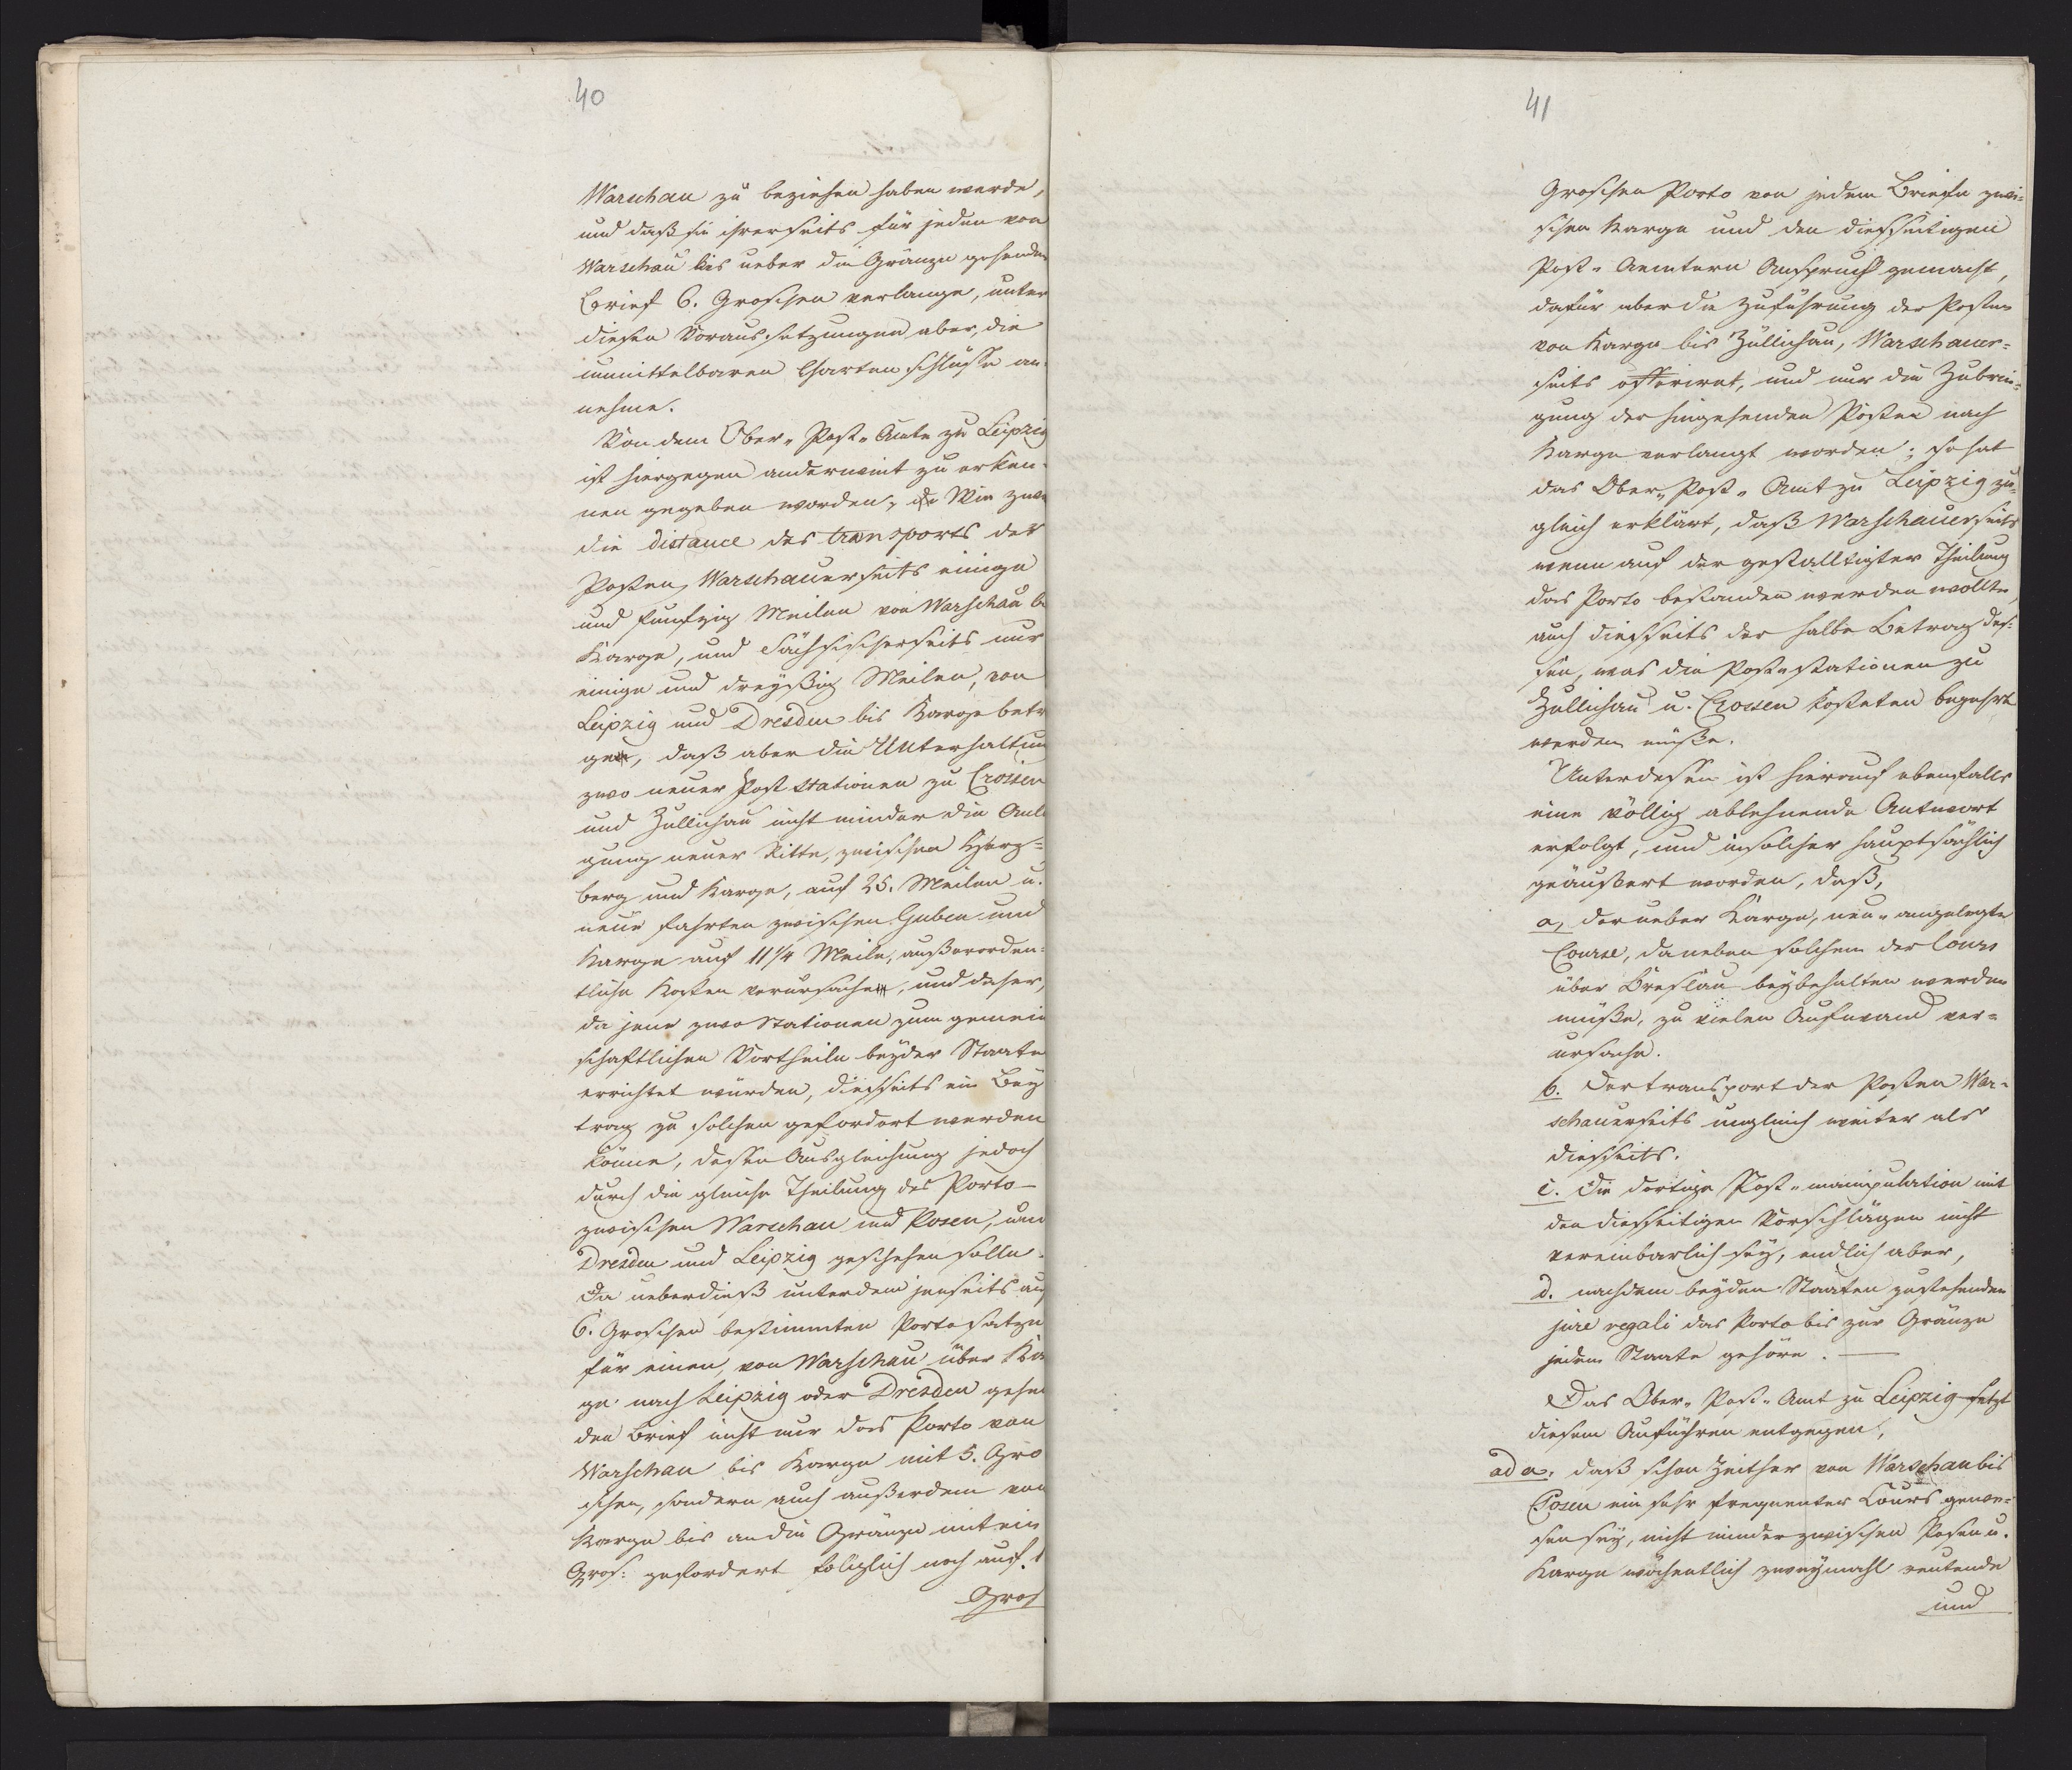 40
Warschau zu beziehen haben werde,
und daß sie ihrerseits für jeden von
Warschau bis ueber die Gränze gehenden
Brief 6. Groschen verlange, unter
diesen Voraussetzungen aber, die
unmittelbaren Charten schlüsse an-
nehme.
Von dem Ober-Post-Amte zu Leipzig
ist hiergegen anderweit zu erken-
nen gegeben worden, Wie zwar
die distance des transports der
Posten, Warschauerseits einige
und funfzig Meilen von Warschau b
Karge, und Sächsischerseits nur
einige und dreyßig Meilen, von
Leipzig und Dresden bis Karge betr
ge, daß aber die Unterhaltun
zwo neuer Post stationen zu Crossen
und Züllichau nicht minder die Anle
gung neuer Ritte, zwischen Herz-
berg und Karge, auf 25. Meilen u.
neue Fahrten zwischen Guben und
Karge auf 11 1/4 Meile, außerorden-
tliche Kosten verursache, und daher,
da jene zwo Stationen zum gemein
schaftlichen Vortheile beyder Staate
errichtet würden, diesseits ein Bey
trag zu solchen gefordert werden
könne, dessen Ausgleichung jedoch
durch die gleiche Theilung des Porto
zwischen Warschau und Posen, und
Dresden und Leipzig geschehen solle.
Da ueberdieß unter dem jenseits auf
6. Groschen bestimmten Porto satze
für einen, von Warschau über Ka
ge nach Leipzig oder Dresden gehen
den Brief nicht nur das Porto von
Warschau bis Karge mit 5. Gro
schen, sondern auch außerdem von
Karge bis an die Gränze mit ein
Gros: gefordert folglich noch auf 1
Gros
41
Groschen Porto von jedem Briefe zwi-
schen Karge und den diesseitigen
Post-Aemtern Anspruch gemacht,
dafür aber die Zuführung der Posten
von Karge bis Züllichau, Warschauer-
seits offeriret, und nur die Zubrin-
gung der hingehenden Posten nach
Karge verlangt worden; so hat
das Ober-Post-Amt zu Leipzig zu-
gleich erklärt, daß Warschauerseits
wenn auf der gestalltigter Theilung
das Porto bestanden werden wollte,
auch diesseits der halbe Betrag des-
sen, was die Post-stationen zu
Züllichau u. Crossen kosteten begehrt
werden müße.
Unterdessen ist hierauf ebenfalls
eine völlig ablehnende Antwort
erfolgt, und in solcher hauptsächlich
geäußert worden, daß,
a, der ueber Karge, neu-angelegte
Course, da neben solchem der Cours
über Breslau beybehalten werden
müße, zu vielen Aufwand ver-
ursache.
b. der transport der Posten War-
schauerseits ungleich weiter als
diesseits.
c. die dortige Post-manipulation mit
den diesseitigen Vorschlägen nicht
vereinbarlich sey, endlich aber,
d. nach dem beyden Staaten zustehenden
jure regali das Porto bis zur Gränze
jedem Staate gehöre. —
Das Ober-Post-Amt zu Leipzig setzt
diesem Anführen entgegen,
ad a. daß schon zeither von Warschau bis
Posen ein sehr frequenter Cours gewe-
sen sey, nicht minder zwischen Posen u.
Karge wöchentlich zweymahl reutende
und